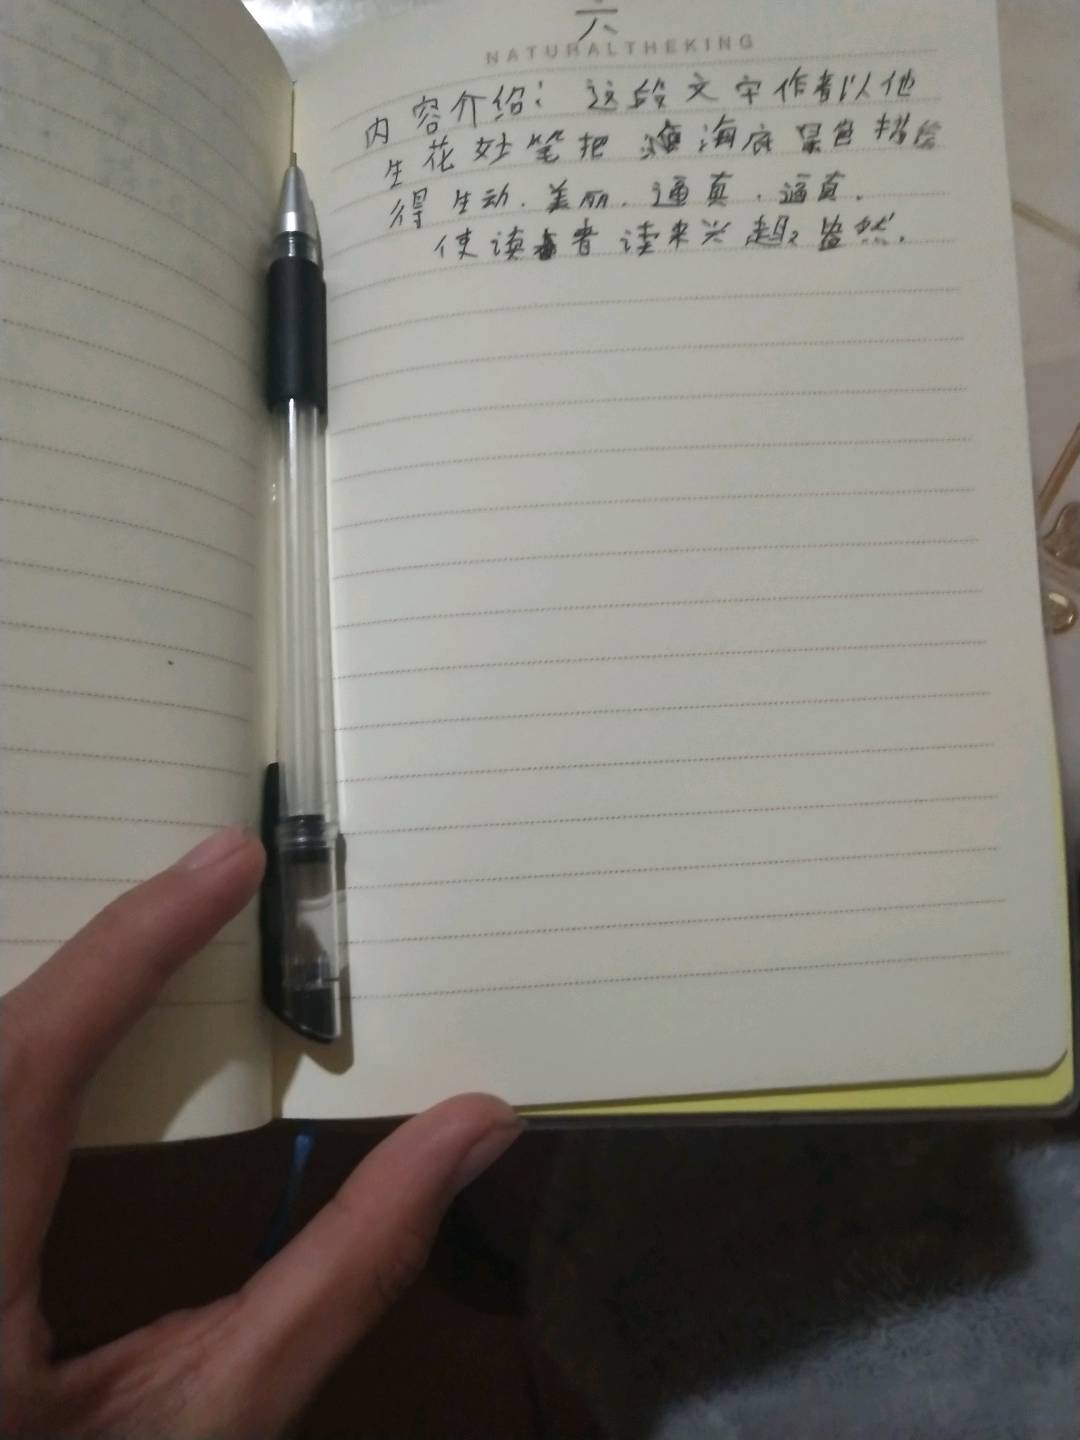 六
NATURALTHEKING
内容介绍：这段文字作者以他
生花妙笔把海底景色描绘
得生动.美丽.逼真.逼真.
使读者读来兴趣盎然.